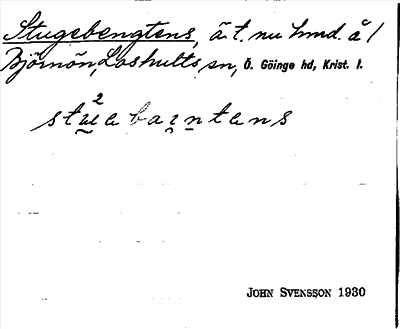 Stugebengtens, ä. t. nu hmd. å /
Björnön, Loshults sn, Ö. Göinge hd, Krist. l.
stu²e baintens
JOHN SVENSSON 1930